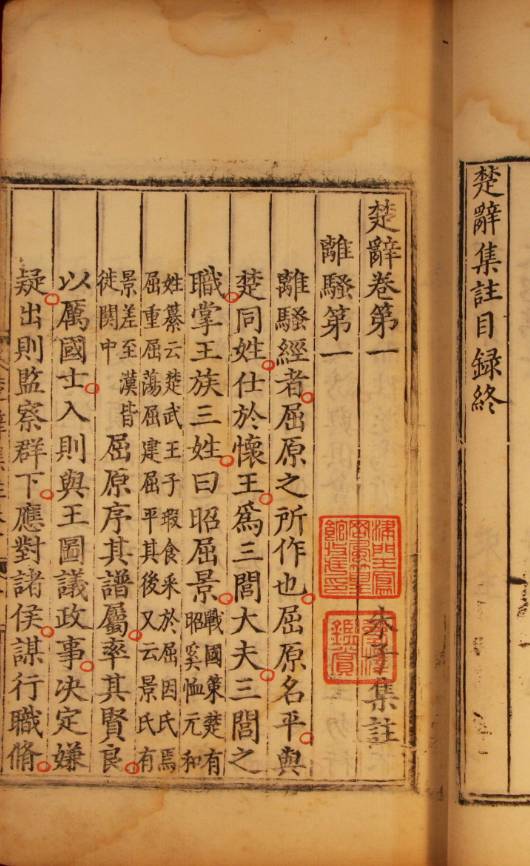 楚辭集註目録終
楚辭卷第一
離騷第一
朱子集註
離騷經者屈原之所作也屈原名平與
楚同姓仕於懷王爲三閭大夫三閭之
職掌王族三姓曰昭屈景戰國策楚有昭奚恤元和
姓纂云楚武王子瑕食采於屈因氏焉
屈重屈蕩屈建屈平其後又云景氏有
景差至漢皆
徙関中
屈原序其譜屬率其賢良
以厲國士入則與王圖議政事决定嫌
疑出則監察群下應對諸侯謀行職脩
鑑賞